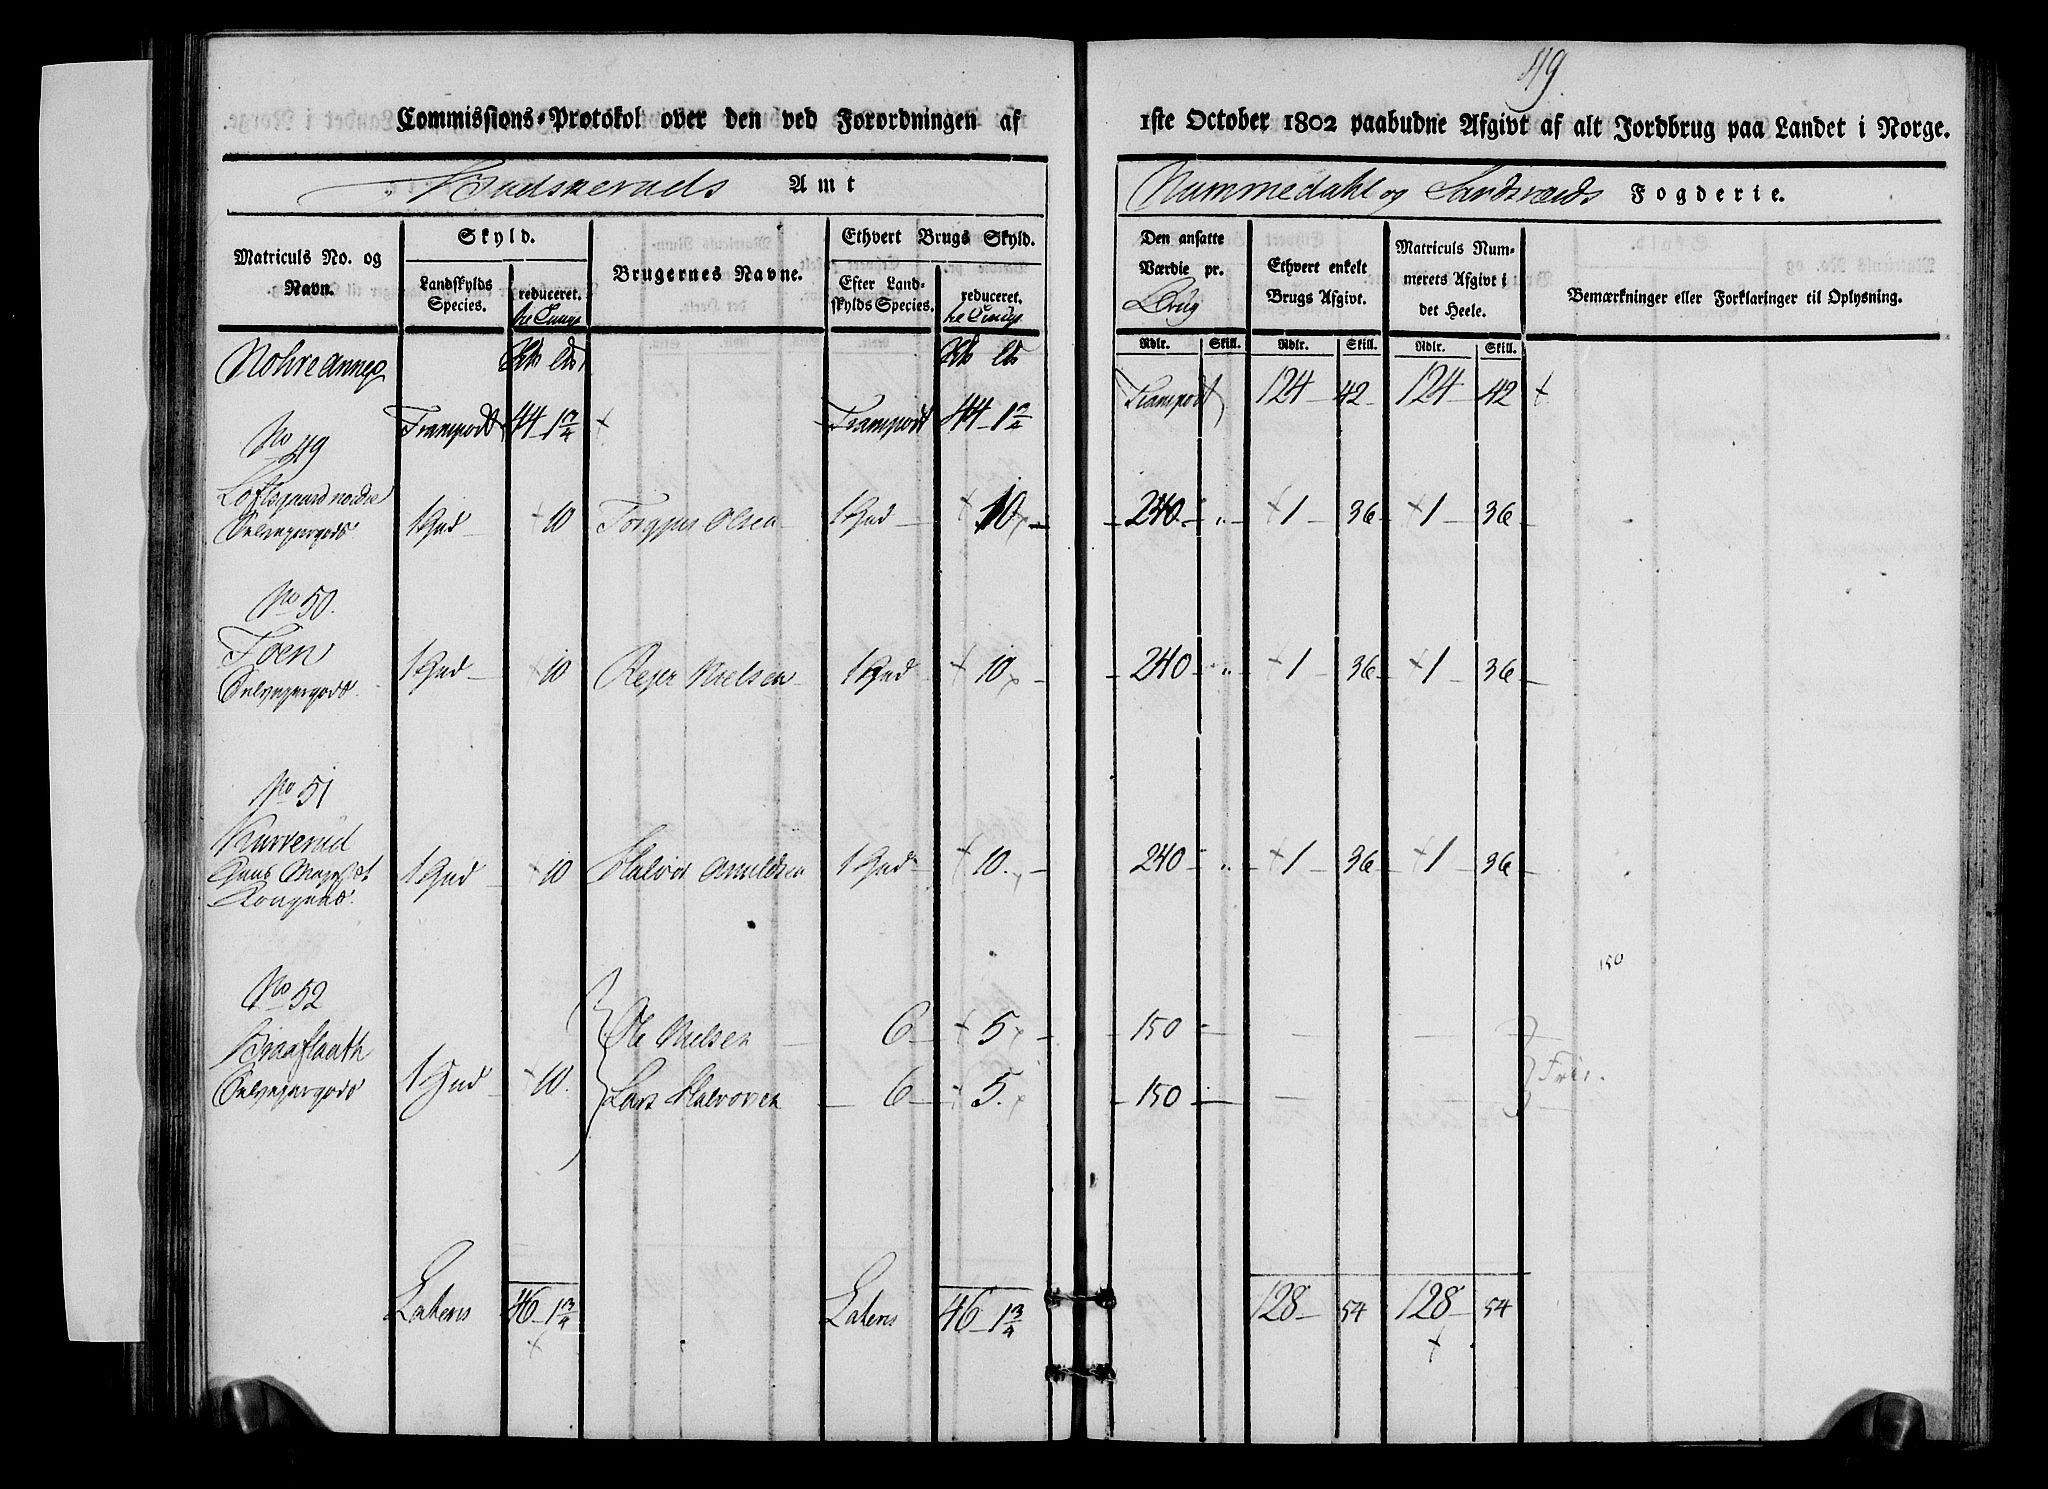 49.
Commissions-Protokol over den ved Forordningen af 1ste October 1802 paabudne Afgivt af alt Jordbrug paa Landet i Norge.
Budskeruds Amt
Nummedahl og Sandsværds Fogderie.
Matriculs No. og Navn.
Skyld.
Landskylds Species.
reduceret.
Brugernes Navne.
Ethvert Brugs Skyld.
Efter Landskylds Species.
reduceret.
Den ansatte Værdie pr. Brug
Ethvert enkelt Brugs Afgivt.
Matriculs Nummerets Afgivt i det Heele.
Bemærkninger eller Forklaringer til Oplysning.
Rdlr. Skill. Rdlr. Skill. Rdlr. Skill.
Nohre annex
Transport 44 - 1 3/4 Transport 44 - 1 3/4 Transport 124 - 42 - 124 - 42
No 49
Loftsgaard nordre
Selvejergods 1 Hud - 10 Torgjus Olsen 1 Hud - 10 - 240 - " - 1 - 36 - 1 - 36 -
No 50.
Toen
Selvejergods 1 Hud - 10 Rejer Nielsen 1 Hud - 10 - 240 - " - 1 - 36 - 1 - 36 -
No 51
Kurverud
Hans Majestet
Kongens. 1 Hud - 10 Halvor Amundsen 1 Hud - 10. - 240 - " - 1 - 36 - 1 - 36 -
150
No 52
Braaflaath
Selvejergods 1 Hud - 10.
Ole Nielsen - 6 - 5 - 150 -
Lars Halvorsen - 6 - 5. - 150 -
Frie.
Latens 46 - 1 3/4 Latens 46 - 1 3/4 128 - 54 128 - 54